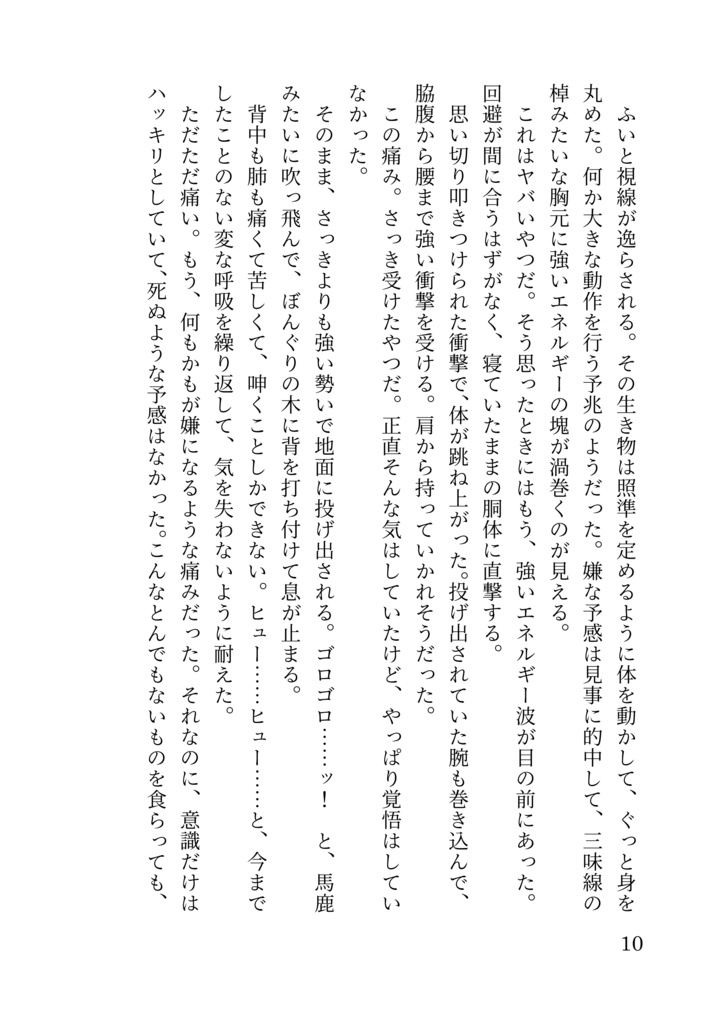 ふいと視線が逸らされる。その生き物は照準を定めるように体を動かして、ぐっと身を
丸めた。何か大きな動作を行う予兆のようだった。嫌な予感は見事に的中して、三味線の
棹みたいな胸元に強いエネルギーの塊が渦巻くのが見える。
　これはヤバいやつだ。そう思ったときにはもう、強いエネルギー波が目の前にあった。
回避が間に合うはずがなく、寝ていたままの胴体に直撃する。
　思い切り叩きつけられた衝撃で、体が跳ね上がった。投げ出されていた腕も巻き込んで、
脇腹から腰まで強い衝撃を受ける。肩から持っていかれそうだった。
　この痛み。さっき受けたやつだ。正直そんな気はしていたけど、やっぱり覚悟はしてい
なかった。
　そのまま、さっきよりも強い勢いで地面に投げ出される。ゴロゴロ……ッ！　と、馬鹿
みたいに吹っ飛んで、ぼんぐりの木に背を打ち付けて息が止まる。
　背中も肺も痛くて苦しくて、呻くことしかできない。ヒュー……ヒュー……と、今まで
したことのない変な呼吸を繰り返して、気を失わないように耐えた。
　ただただ痛い。もう、何もかもが嫌になるような痛みだった。それなのに、意識だけは
ハッキリとしていて、死ぬような予感はなかった。こんなとんでもないものを食らっても、
10